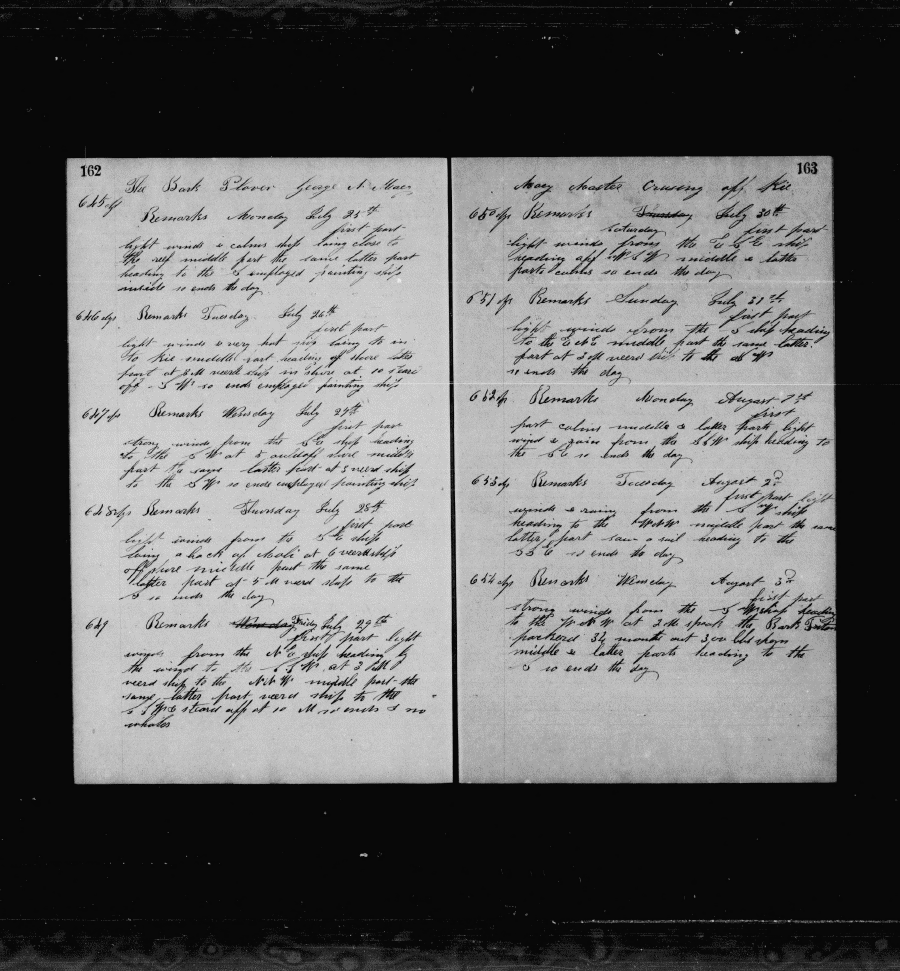 162
The Bark Plover George N. Macy
645 dys
Remarks Monday July 25th
first part
light winds & calms ship laing close to
the reef middle part the same latter part
heading to the S employed painting ship
inside so ends the day
646 dys Remarks Tuesday July 26th
first part
light winds & very hot ship laing to in
to Kie middle part heading of shore latter
part at 5 M veerd ship in shore at 10 steard
off S W so ends employed painting ship
647 dys Remarks Wensday July 27th
first part
strong winds from the S E ship heading
to the S W at
part the same latter part at 3 veerd ship
to the S W so ends employed painting ship
648 dys Remarks Thursday July 28th
first part
light winds from the S E ship
laing a back of at 6 veerd ship
off shore middle part the same
latter part at 5 M veerd ship to the
S so ends the day
649 Remarks Friday July 29th
first part light
winds from the N E ship heading by
the wind to the S S W at 3
veerd ship to the N N W middle part the
same latter part veerd ship to the
S S W & steard off at 10 M so ends & no
whales
163
Macy Master Crusing off Kie
650 dys Remarks Thursday July 30th
Saturday first part
light winds from the E S E ship
heading off W S W middle & latter
parts calms so ends the day
651 dys Remarks Sunday July 31st
first part
light winds from the S ship heading
to the E N E middle part the same latter
part at 3 M veerd ship to the W
so ends the day
652 dys Remarks Monday August 1st
first
part calms middle & latter parts light
wind & rain from the S S W ship heading to
the S E so ends the day
653 dys Remarks Tuesday August 2d
first part light
winds & rainy from the S W ship
heading to the W N W middle part the same
latter part saw a sail heading to the
S S E so ends the day
654 dys Remarks Wensday August 3d
first part
strong winds from the S W ship heading
to the W N W at 2 M spook the Bark Triton
34 months out 300 bbl sperm
middle & latter parts heading to the
S so ends the day